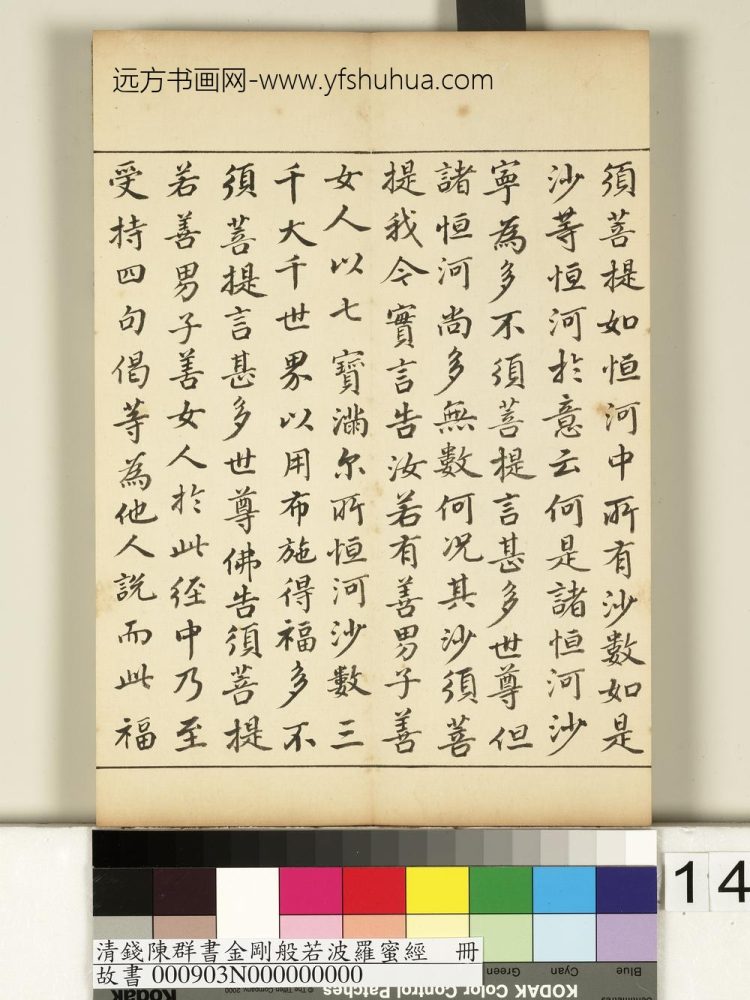 远方书画网-www.yfshuhua.com
須菩提如恒河中所有沙數如是
沙等恒河於意云何是諸恒河沙
寧為多不須菩提言甚多世尊但
諸恒河尚多無數何况其沙須菩
提我今實言告汝若有善男子善
女人以七寶滿尔所恒河沙數三
千大千世界以用布施得福多不
須菩提言甚多世尊佛告須菩提
若善男子善女人於此經中乃至
受持四句偈等為他人說而此福
14
清錢陳群書金剛般若波羅蜜經 冊
故書 000903N000000000
Blue
Cyan
Green
KODAK Color Control Patches
Kodak